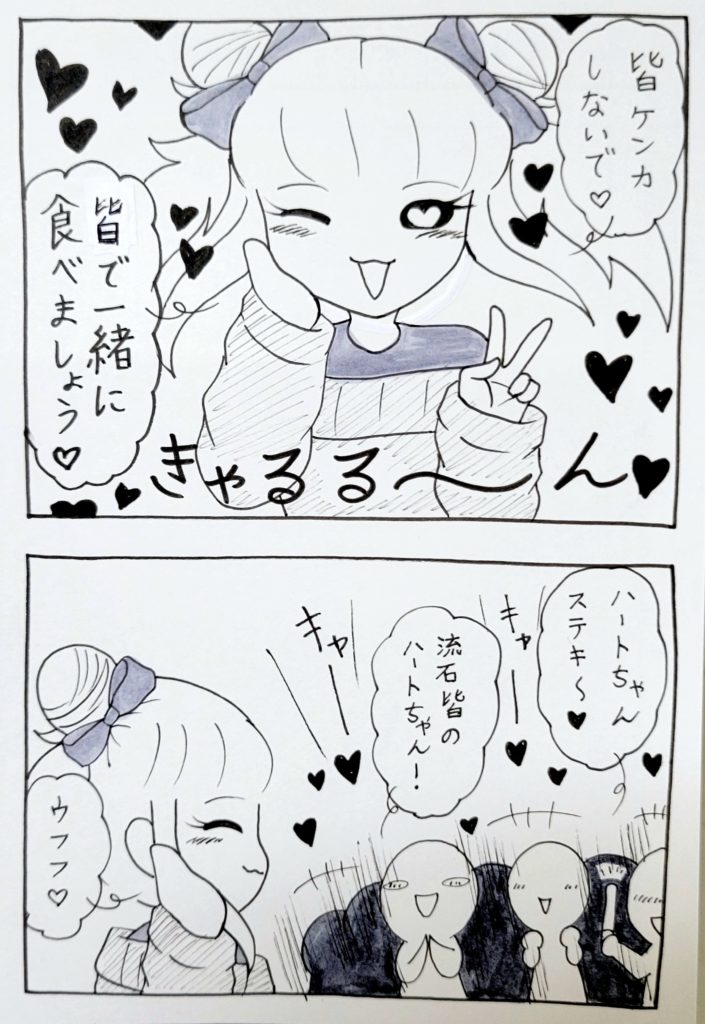 皆ケンカ
しないで♡
皆で一緒に
食べましょう♡
きゃるる〜ん
ハートちゃん
ステキ〜♥
キャー
流石皆の
ハートちゃん！
キャー
ウフフ♡